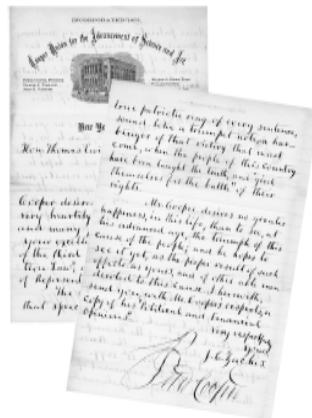 INCORPORATED 1859.
Cooper Union for the Advancement of Science and Art
New Yo
Hon. Thomas Ewi
Cooper desires
very heartily
and many
your excell
of the Third
tion Law",
of Represent
The
that speec
tone patriotic ring of every sentence,
sound like a trumpet
of that victory that must
come, when the people of this Country
have been taught the truth, and "gird
themselves for the battle" of their
rights.
Mr. Cooper desires no greater
happiness, in this life, than to see, at
his advanced age, the triumph of this
cause of the people; and he hopes to
see it yet, as the proper result of such
efforts as yours, and of other able men
devoted to this cause. I herewith,
send you, with Mr. Cooper's respects, a
Copy of his "Political and Financial
Opinions".
Very respectfully
Yours
Peter Cooper